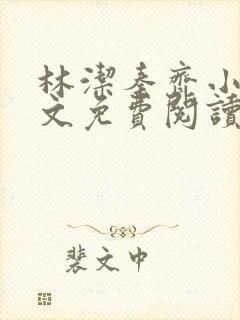 林潔秦齊小
文免費閱讀
裴文中